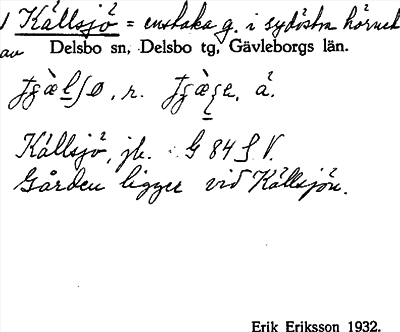 1 Källsjö = enstaka g. i sydöstra hörnet
av Delsbo sn, Delsbo tg, Gävleborgs län.
Källsjö, jb. G 84 f V.
Gården ligger vid Källsjön.
Erik Eriksson 1932.